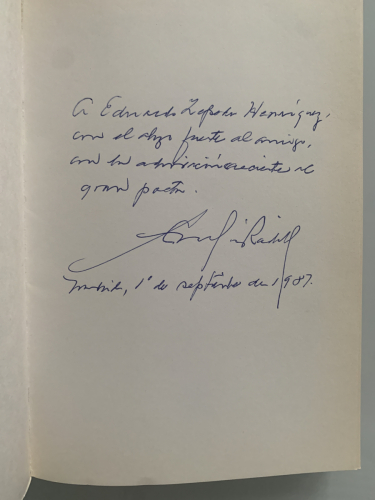 A Eduardo Zepeda Henríquez,
con el abzo fuerte al amigo,
con la admiración creciente al
gran poeta.
Madrid, 1º de septbre de 1987.